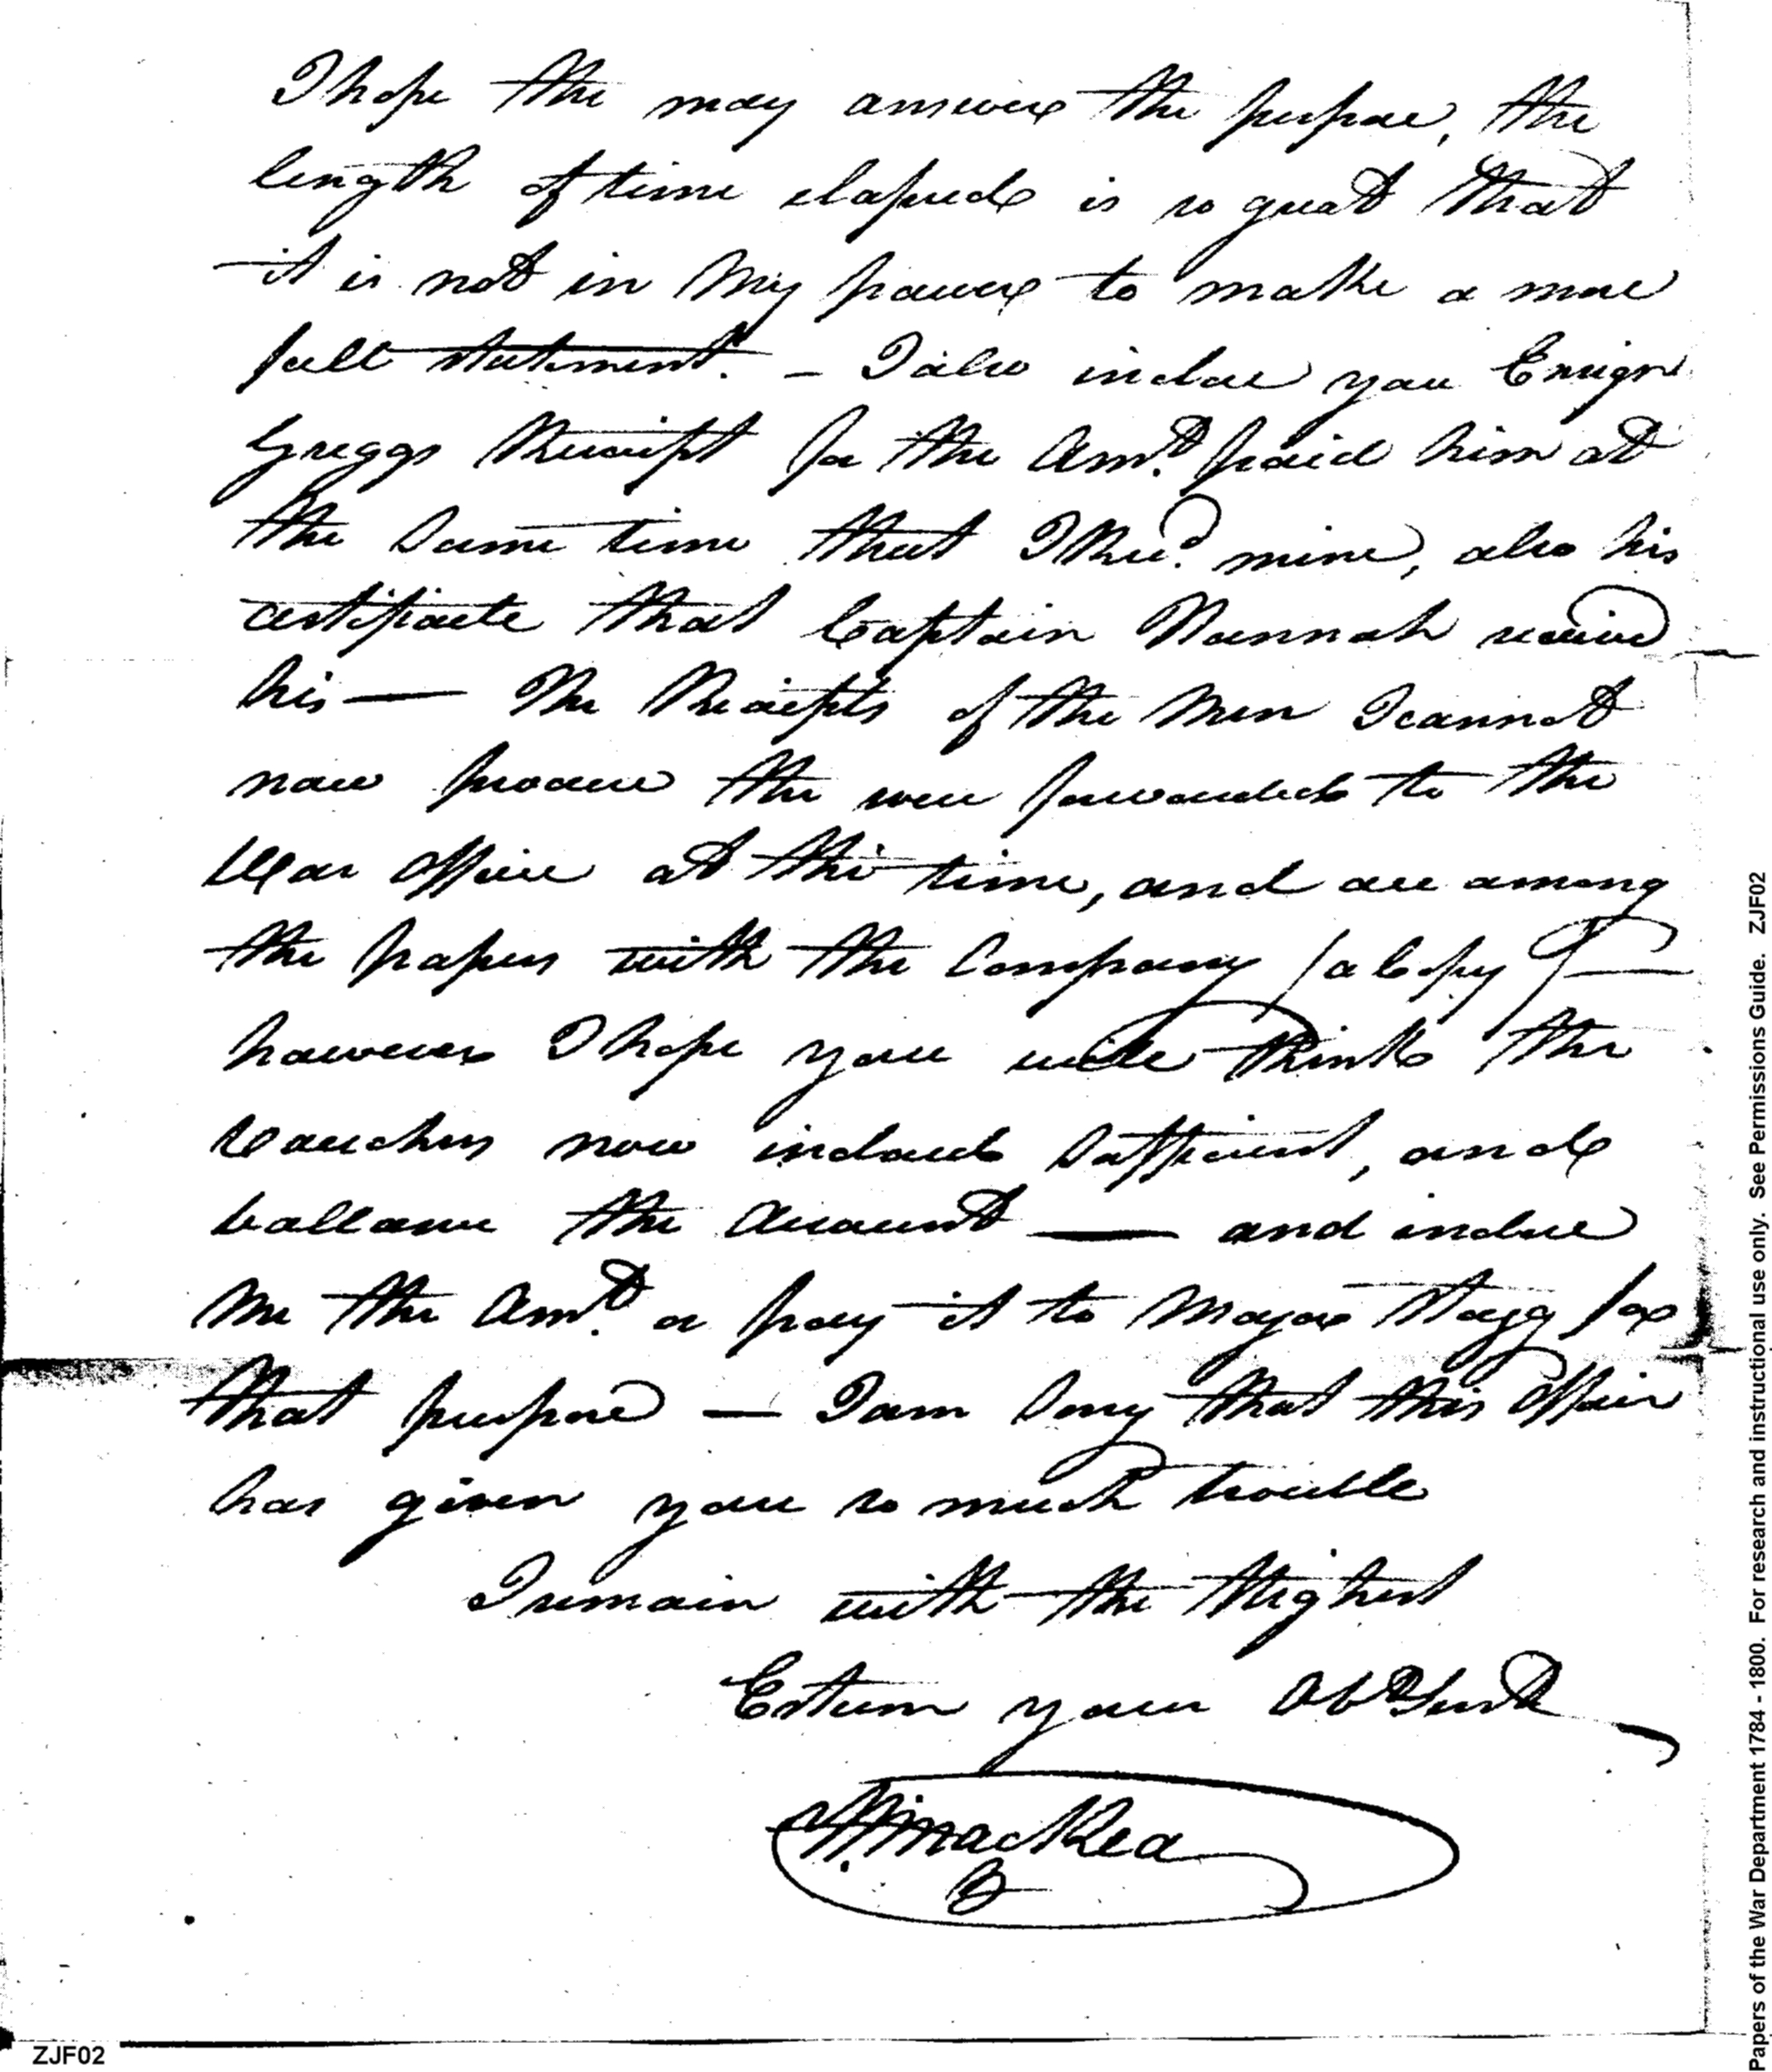 I hope the may answer the purpose, the
length of time elapsed is so great that
it is not in My power to make a more
full statement. – I also inclose you Ensign
Greggs Receipt for the Amt. paid him at
the Same time that I Recd. mine, also his
certificate that Captain Hannah receive
his — The Receipts of the Men I cannot
now procure the were forwarded to the
War Office at the time, and are among
the papers with the Company
however I hope you will think the
Vouchers now inclosed Sufficient, and
ballance the Account — and inclose
Me the Amt. or pay it to Major Stagg for
that purpose — I am Sorry that this Affair
has given you so much trouble
I remain with the Highest
Esteem your Obt Servt
Wm MacRea
ZJF02
Papers of the War Department 1784 - 1800. For research and instructional use only. See Permissions Guide. ZJF02